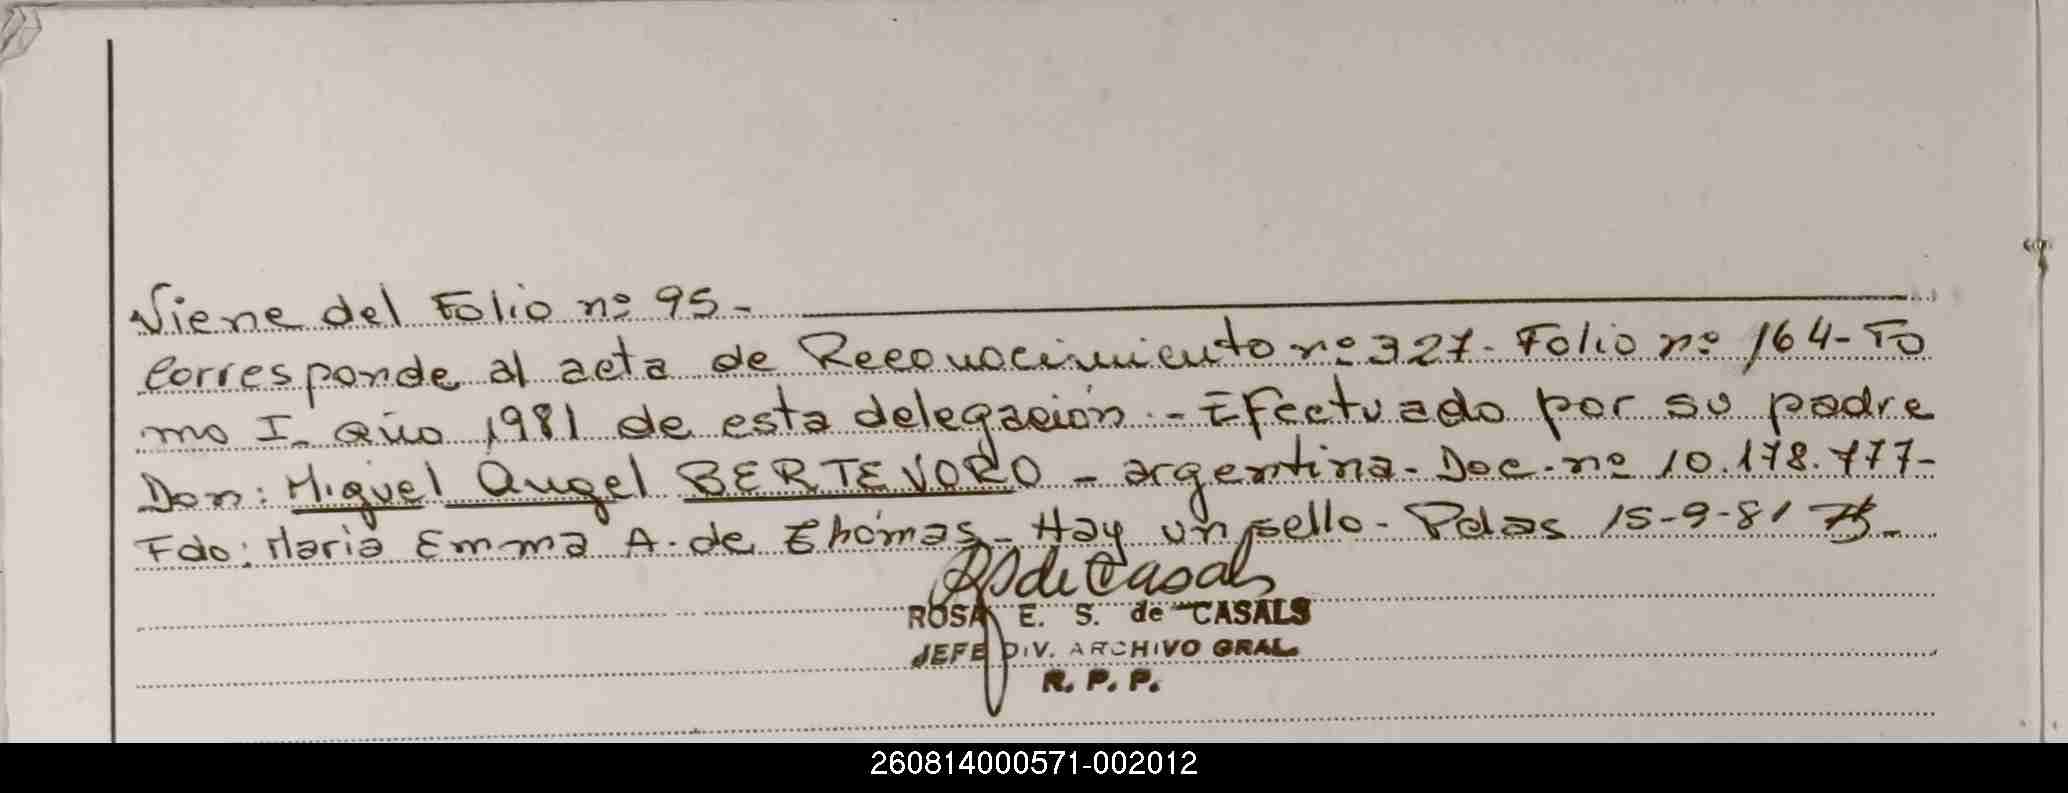 Viene del Folio nº 95-
Corresponde al acta de Reconocimiento nº 327- Folio nº 164- To
mo I- año 1981 de esta delegación.- Efectuado por su padre
Don: Miguel Angel BERTEVORO - argentina- Doc. nº 10.178.777-
Fdo: Maria Emma A. de Thomas- Hay un sello- Pdas 15-9-81
RS de Casals
ROSA E. S. de CASALS
JEFE DIV. ARCHIVO GRAL.
R. P. P.
260814000571-002012